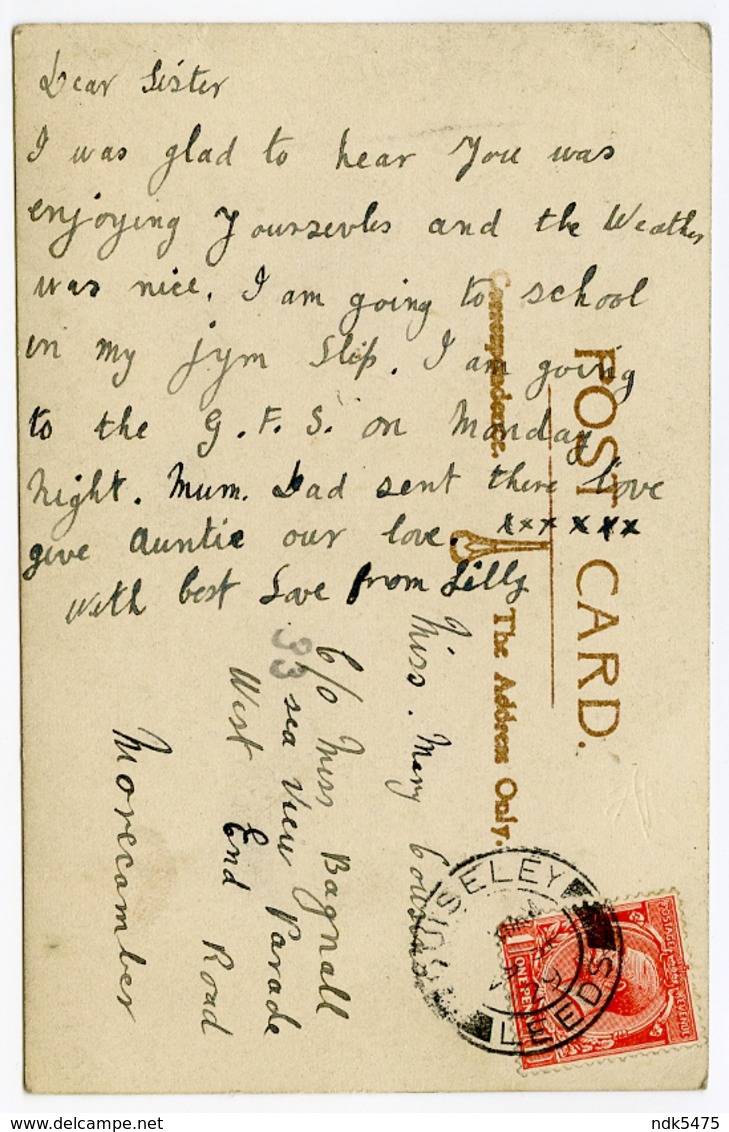 Dear Sister
I was glad to hear You was
enjoying Yourservles and the Weather
was nice. I am going to school
in my jym Slip. I am going
to the G.F.S. on Monday
Night. Mum. Dad sent there love
give Auntie our love. xxx xxx
With best Love from Lilly
POST CARD.
Correspondence.
The Address Only.
Miss. Mary Cousins
C/O Miss Bagnall
33 sea View Parade
West End Road
Morecamber
GUISELEY
LEEDS
POSTAGE REVENUE
ONE PENNY
ndk5475